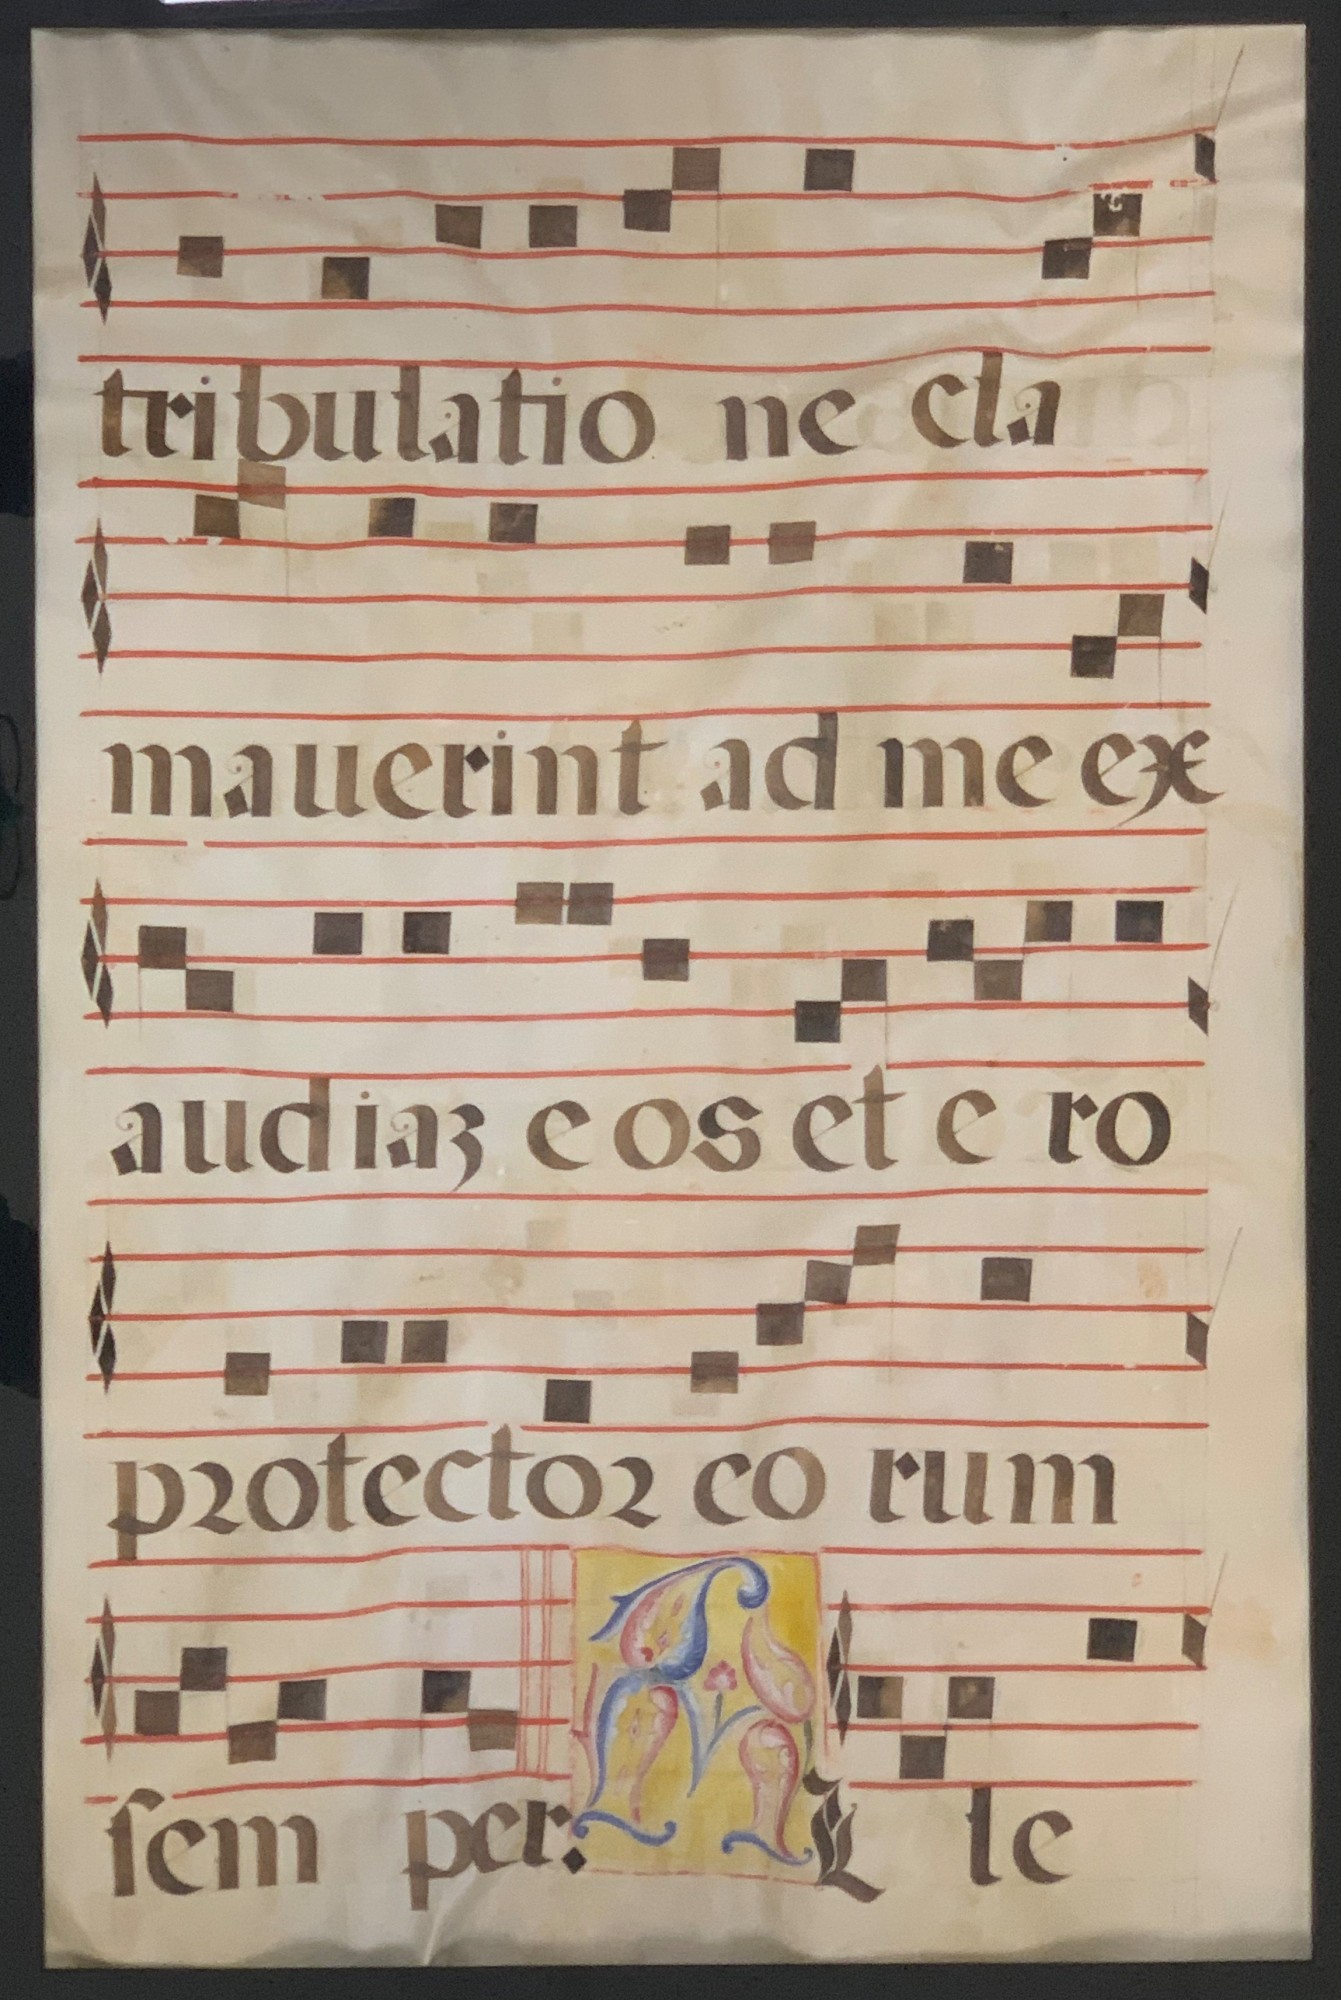 tribulatio ne cla
mauerint ad me ex
audiaꝫ e os et e ro
pꝛotectoꝛ eo rum
ſem per. A L le